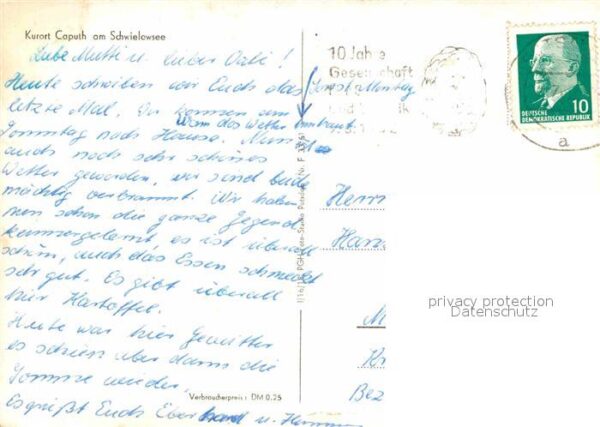 Kurort Caputh am Schwielowsee
Liebe Mutti u. lieber Vati!
Heute schreiben wir Euch das
letzte Mal. Wir kommen am
Sonntag nach Hause. Nun ist
Wenn das Wetter
auch noch sehr schönes
Wetter geworden, wir sind beide
mächtig verbrannt. Wir haben
nun schon die ganze Gegend
kennengelernt, es ist überall
schön, auch das Essen schmeckt
sehr gut. Es gibt überall
hier Kartoffel.
Heute war hier Gewitter
es schien aber dann die
Sonne wieder.
Es grüßt Euch Eberhard u.
Verbraucherpreis: DM 0.25
10 Jahre
Gesellschaft
DEUTSCHE
DEMOKRATISCHE REPUBLIK
10
a
Herrn
privacy protection
Datenschutz
Bez